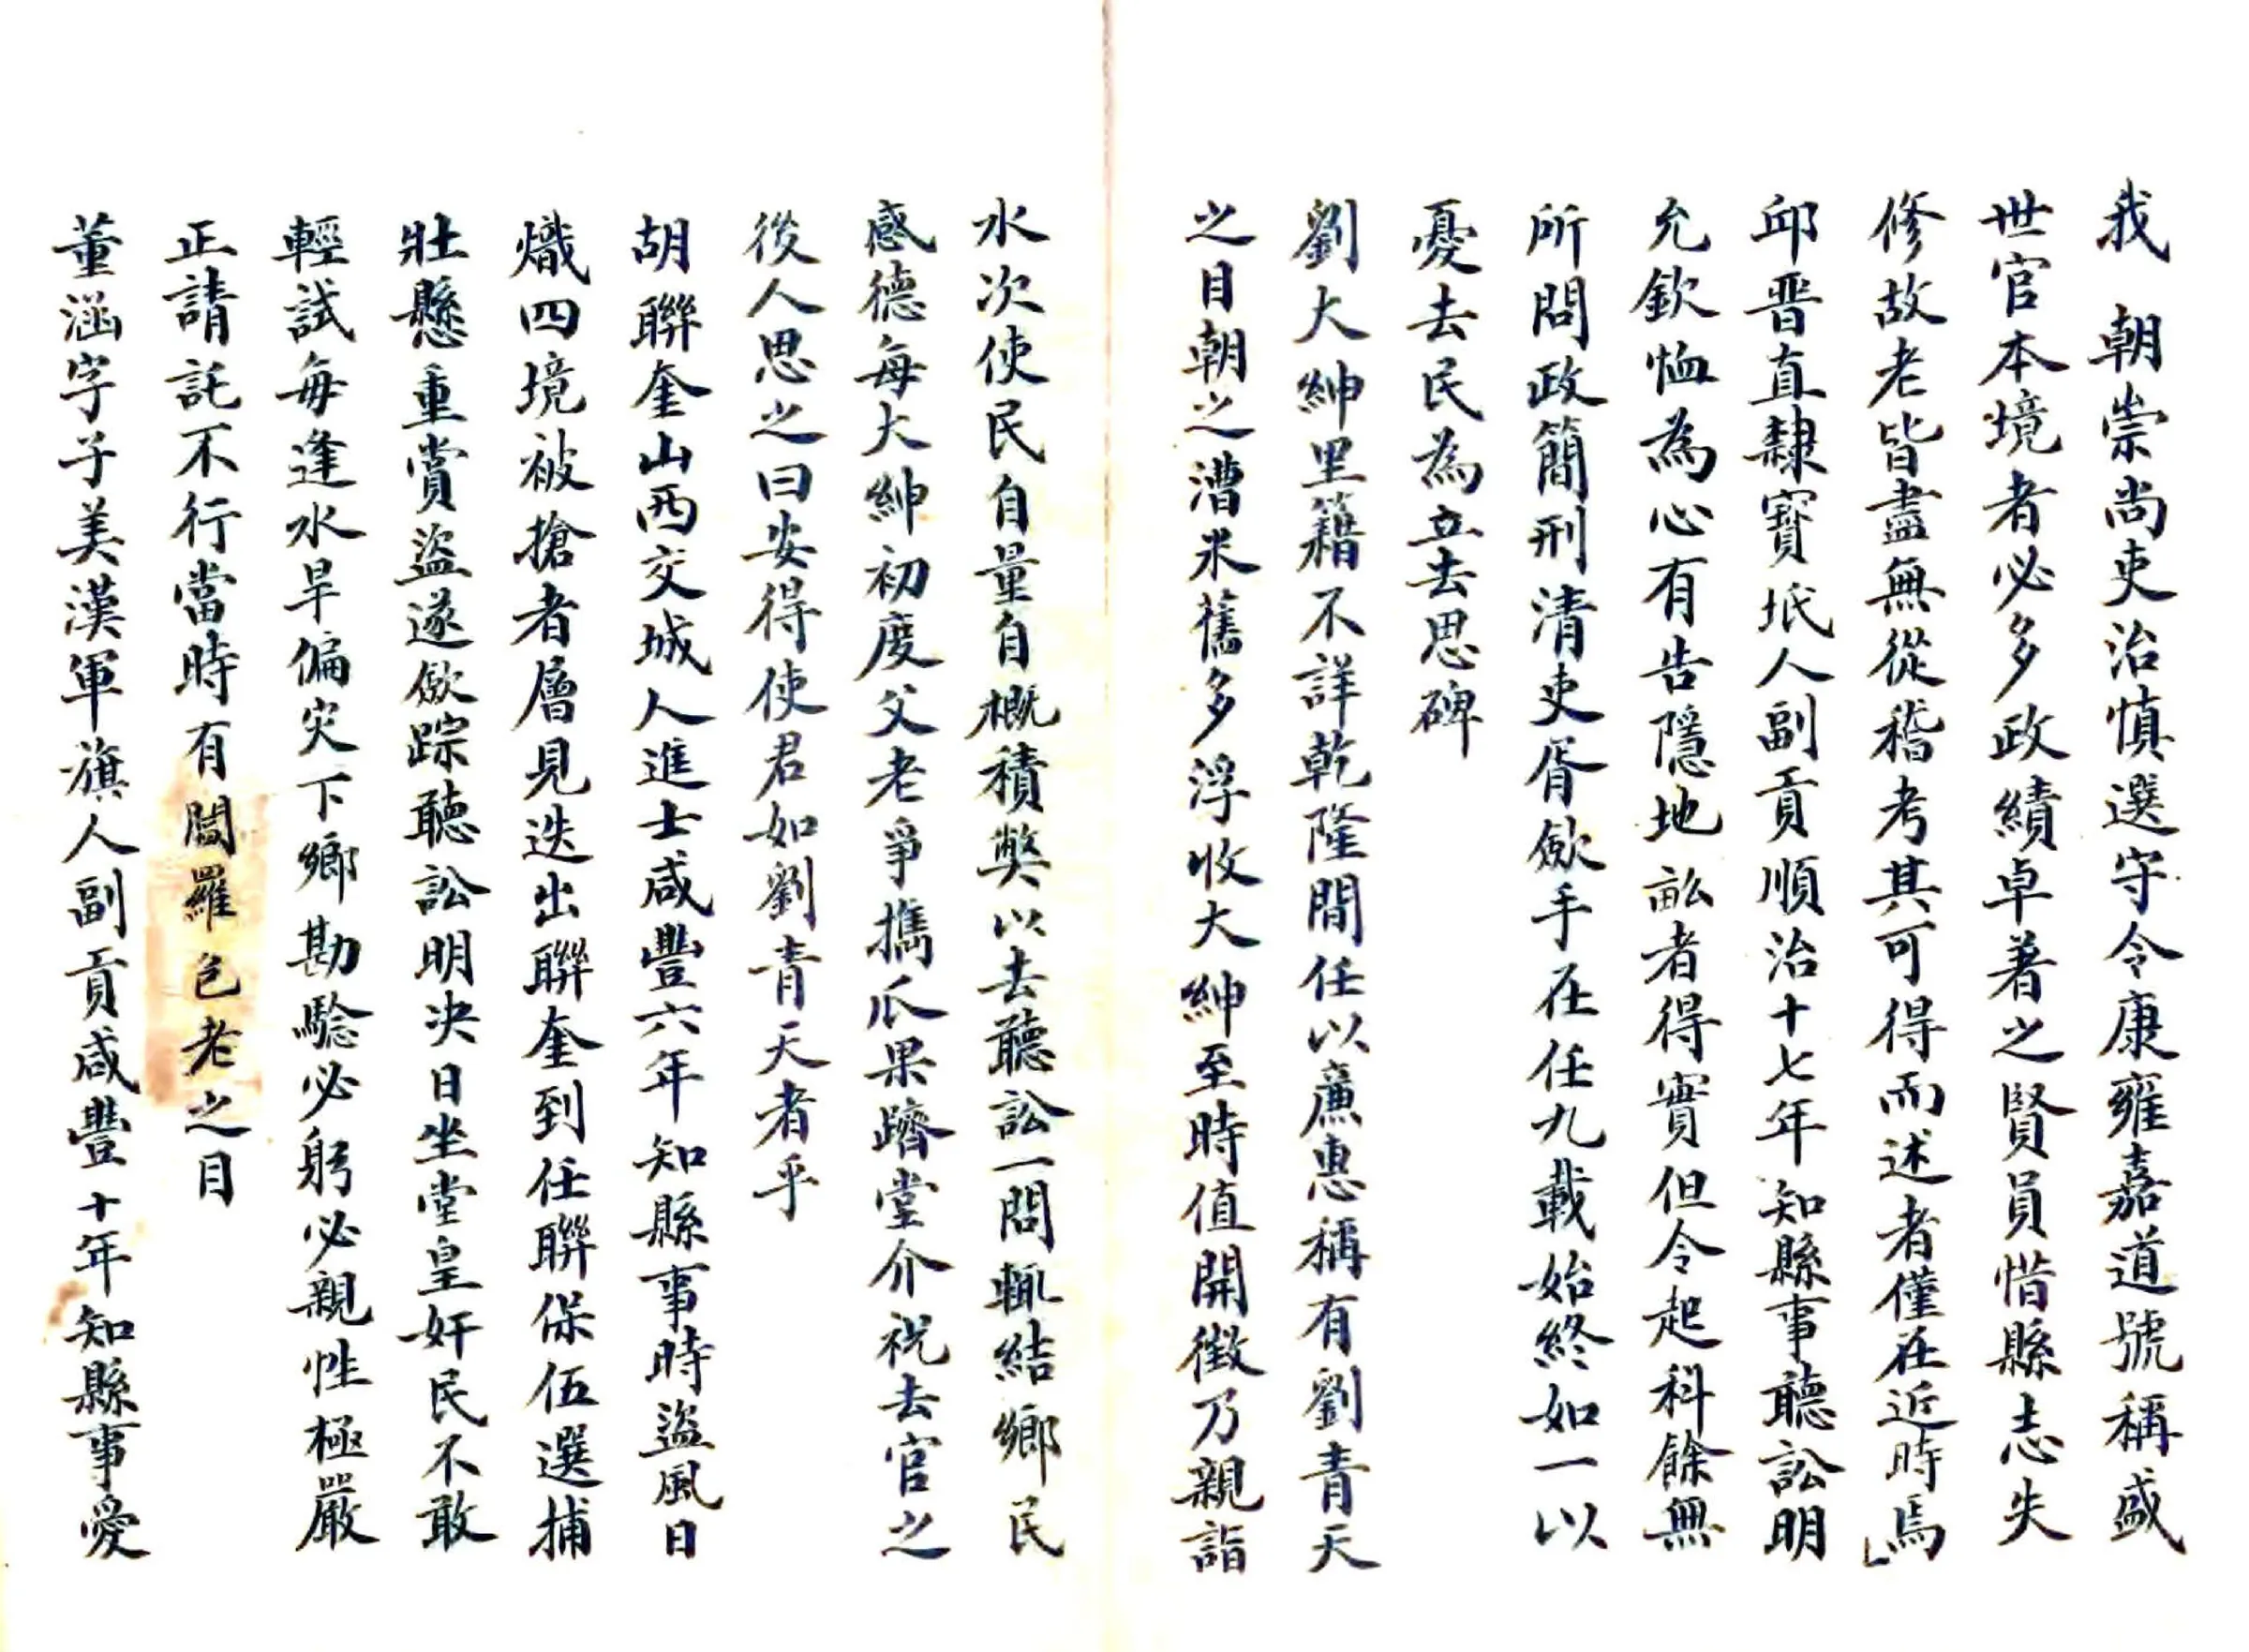 我　朝崇尚吏治慎選守令康雍嘉道號稱盛
世官本境者必多政績卓著之賢員惜縣志失
修故老皆盡無從稽考其可得而述者僅在近時焉
邱晋直隸寶坻人副貢順治十七年知縣事聽訟明
允欽恤為心有告隱地畝者得實但令起科餘無
所問政簡刑清吏胥斂手在任九載始終如一以
憂去民為立去思碑
劉大紳里籍不詳乾隆間任以廉惠稱有劉青天
之目朝之漕米舊多浮收大紳至時值開徵乃親詣
水次使民自量自概積弊以去聽訟一問輒結鄉民
感德每大紳初度父老爭擕瓜果躋堂介祝去官之
後人思之曰安得使君如劉青天者乎
胡聯奎山西交城人進士咸豐六年知縣事時盜風日
熾四境被搶者層見迭出聯奎到任聯保伍選捕
壯懸重賞盜遂斂踪聽訟明決日坐堂皇奸民不敢
輕試每逢水旱偏災下鄉勘驗必躬必親性極嚴
正請託不行當時有閻羅包老之目
董涵字子美漢軍旗人副貢咸豐十年知縣事愛